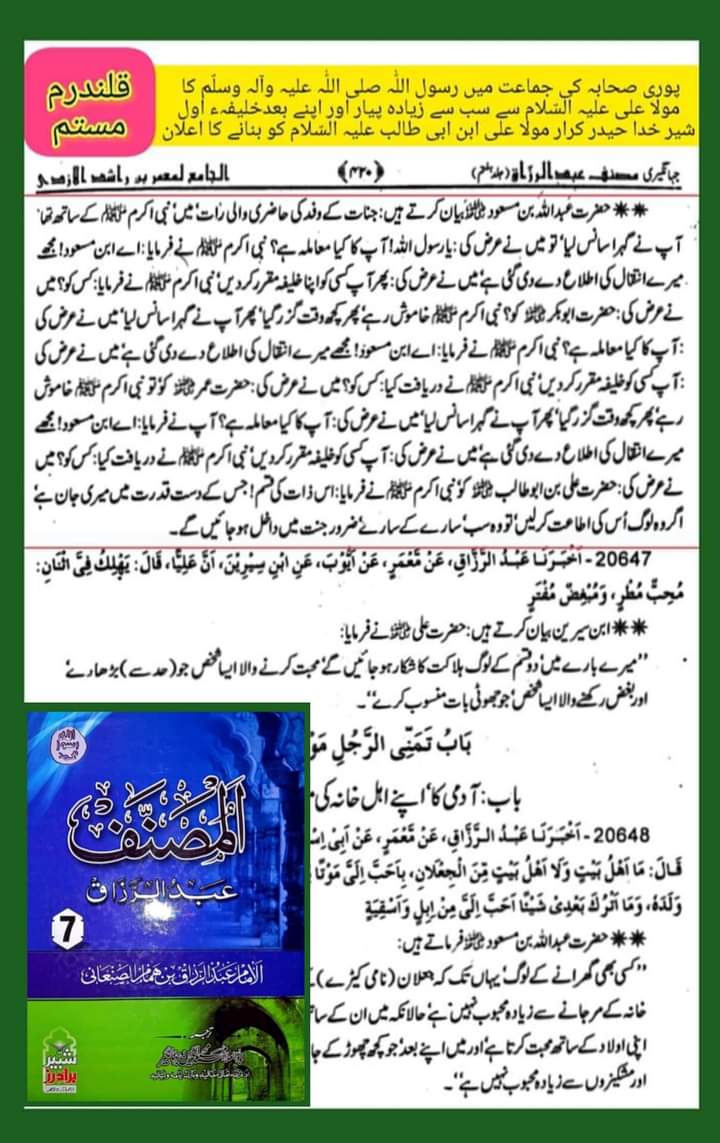 قلندرم
مستم
پوری صحابہ کی جماعت میں رسول اللہ صلی اللہ علیہ وآلہ وسلّم کا
مولا علی علیہ السّلام سے سب سے زیادہ پیار اور اپنے بعد خلیفہء اول
شیر خدا حیدر کرار مولا علی ابن ابی طالب علیہ السّلام کو بنانے کا اعلان
جہانگیری مصنف عبد الرزاق (جلد ہفتم) ﴿۴۲۰﴾ الجامع لمعمر بن راشد الازدی
✷✷ حضرت عبداللہ بن مسعود رضی اللہ عنہ بیان کرتے ہیں: جنات کے وفد کی حاضری والی رات میں نبی اکرم ﷺ کے ساتھ تھا
آپ نے گہرا سانس لیا' تو میں نے عرض کی: یارسول اللہ! آپ کا کیا معاملہ ہے؟ نبی اکرم ﷺ نے فرمایا: اے ابن مسعود! مجھے
میرے انتقال کی اطلاع دے دی گئی ہے' میں نے عرض کی: پھر آپ کسی کو اپنا خلیفہ مقرر کردیں' نبی اکرم ﷺ نے فرمایا: کس کو؟ میں
نے عرض کی: حضرت ابوبکر رضی اللہ عنہ کو؟ نبی اکرم ﷺ خاموش رہے' پھر کچھ وقت گزر گیا' پھر آپ نے گہرا سانس لیا' میں نے عرض کی
: آپ کا کیا معاملہ ہے؟ نبی اکرم ﷺ نے فرمایا: اے ابن مسعود! مجھے میرے انتقال کی اطلاع دے دی گئی ہے' میں نے عرض کی
: آپ کسی کو خلیفہ مقرر کردیں' نبی اکرم ﷺ نے دریافت کیا: کس کو؟ میں نے عرض کی: حضرت عمر رضی اللہ عنہ کو' تو نبی اکرم ﷺ خاموش
رہے' پھر کچھ وقت گزر گیا' پھر آپ نے گہرا سانس لیا' میں نے عرض کی: آپ کا کیا معاملہ ہے؟ آپ نے فرمایا: اے ابن مسعود! مجھے
میرے انتقال کی اطلاع دے دی گئی ہے' میں نے عرض کی: آپ کسی کو خلیفہ مقرر کردیں' نبی اکرم ﷺ نے دریافت کیا: کس کو؟ میں
نے عرض کی: حضرت علی بن ابوطالب رضی اللہ عنہ کو' نبی اکرم ﷺ نے فرمایا: اس ذات کی قسم! جس کے دست قدرت میں میری جان ہے'
اگر وہ لوگ اُس کی اطاعت کرلیں' تو وہ سب' سارے کے سارے' ضرور جنت میں داخل ہوجائیں گے۔
20647 - اَخْبَرَنَا عَبْدُ الرَّزَّاقِ، عَنْ مَّعْمَرٍ، عَنْ اَيُّوْبَ، عَنِ ابْنِ سِيرِيْنَ، اَنَّ عَلِيًّا، قَالَ: يَهْلِكُ فِىَّ اثْنَانِ:
مُحِبٌّ مُطْرٍ، وَمُبْغِضٌ مُفْتَرٍ
✷✷ ابن سیرین بیان کرتے ہیں: حضرت علی رضی اللہ عنہ نے فرمایا:
"میرے بارے میں' دو قسم کے لوگ ہلاکت کا شکار ہوجائیں گے' محبت کرنے والا ایسا شخص' جو (حد سے) بڑھا دے'
اور بغض رکھنے والا ایسا شخص' جو جھوٹی بات منسوب کرے"۔
بَابُ تَمَنِّى الرَّجُلِ
باب: آدمی کا' اپنے اہل خانہ کی
20648 - اَخْبَرَنَا عَبْدُ الرَّزَّاقِ، عَنْ مَّعْمَرٍ، عَنْ اَبِىْ
قَالَ: مَا اَهْلُ بَيْتٍ وَلَا اَهْلُ بَيْتٍ مِّنَ الْجِعْلَانِ، بِاَحَبَّ اِلَىَّ مَوْتًا
وَلَدَهُ، وَمَا اَتْرُكُ بَعْدِى شَيْئًا اَحَبَّ اِلَىَّ مِنْ اِبِلٍ وَاَسْقِيَةٍ
✷✷ حضرت عبداللہ بن مسعود رضی اللہ عنہ فرماتے ہیں:
"کسی بھی گھرانے کے لوگ' یہاں تک کہ جعلان (نامی کیڑے)
خانہ کے مرجانے سے زیادہ محبوب نہیں ہے' حالانکہ میں ان کے
اپنی اولاد کے ساتھ محبت کرتا ہے' اور میں اپنے بعد' جو کچھ چھوڑ کے
اور مشکیزوں سے زیادہ محبوب نہیں ہے"۔
المصنّف
عبد الرزاق
7
الامام عبد الرزاق بن همام الصنعانی
ترجمہ
شبیر
برادرز